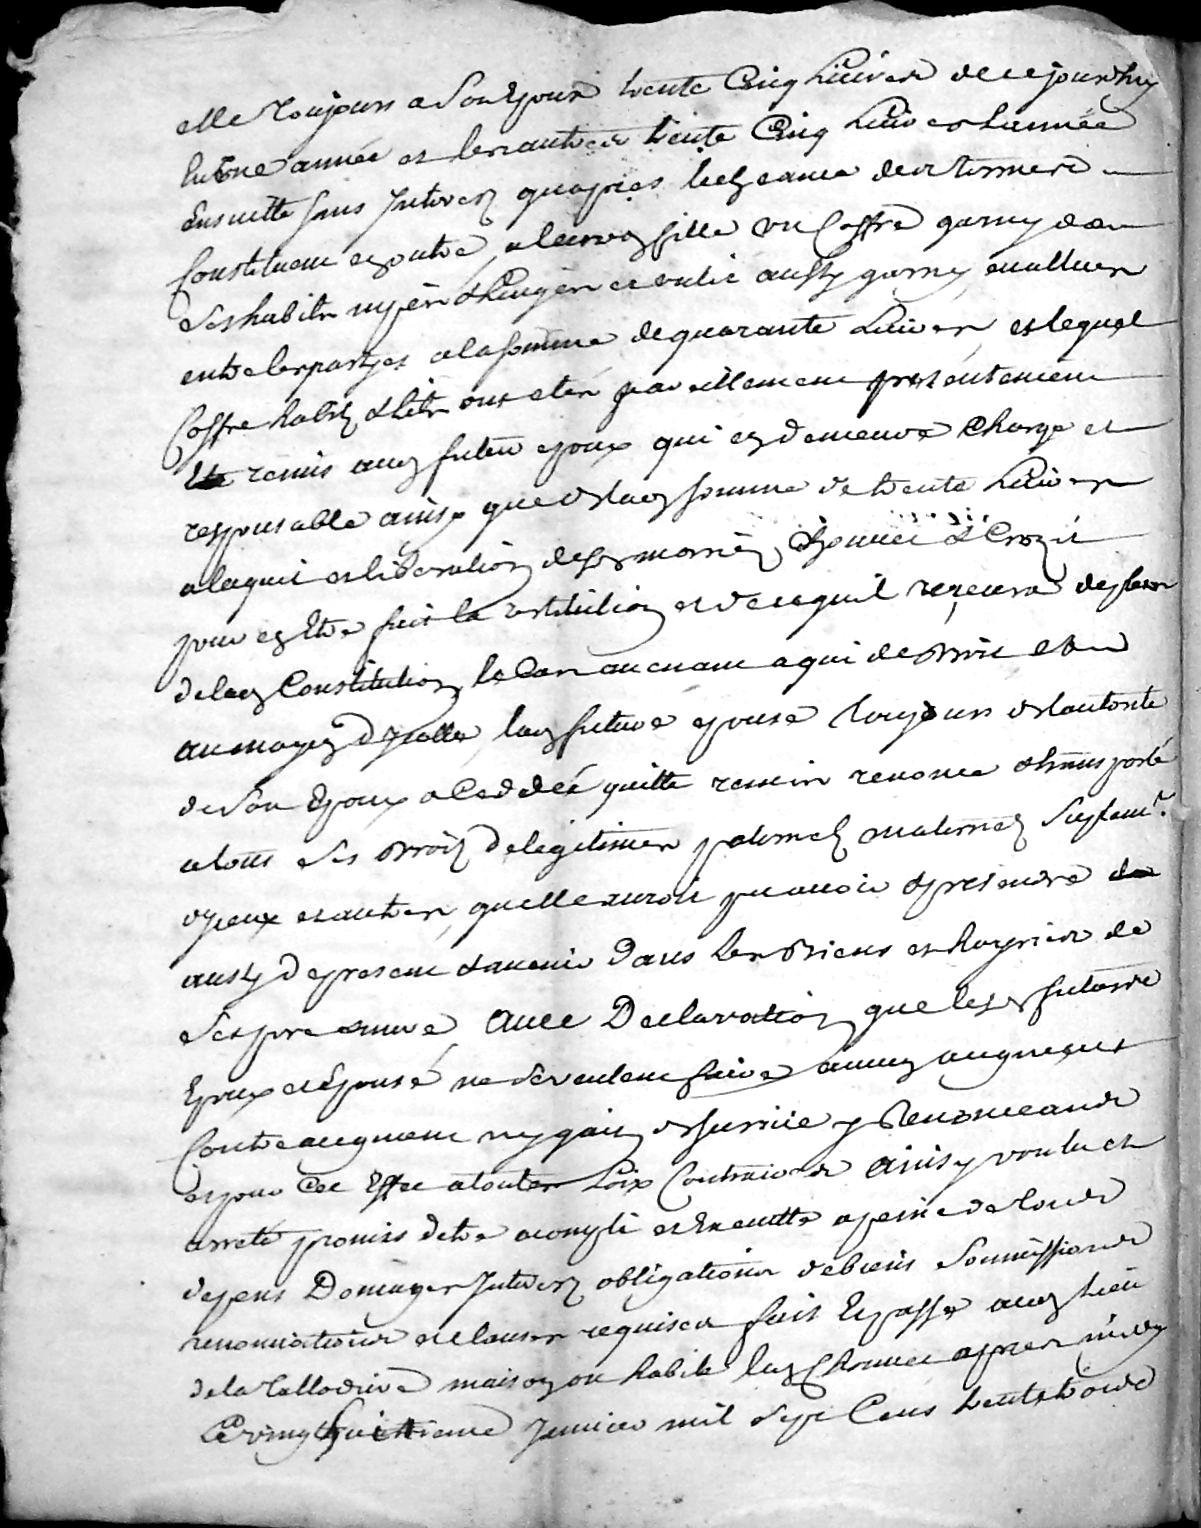 elle toujours a son Epoux trente Cinq Livres de ce jourdhuy
En une année et les autres trente Cinq Livres Lannée
Ensuitte sans Interez quapres lecheance des termes
Constituent en outre a leurd fille un Coffre garny de
ses habits linges et outre aussy garny evallues
entre les partyes a la somme de quarante Livres et lequel
Coffre habitz & lits ont etés pareillement presentement
remis aud futeu epoux qui en demeure Charge et
responsable ainsy que de lad somme de trente Livres
a laquit et liberation desd mariés & Crozit
pour en Etre fait la restitution et de ce quil recevra
de lad Constitution le Cas avenant a qui de droit et au
au moyen dycelle lad future epouse toujours de lautorite
de son Epoux a Ceddée quitte remis renonce & transporté
a tous ses droitz de legitimes paternel maternel suplemt.
ayeux et autres quelle auroit pu avoir & pretendre
aussy de present & avenir Dans les Biens et hoyries de
ses pere & mere avec Declaration que lesd futeurs
Epoux et Epouse ne se veulent faire aucun augment
Contre augment ny gain de survie y Renonceants
et pour Cet Effet a toutes Loix Contraires ainsy voulu et
arreté promis detre acomply et Executté a peine de tous
depens Domages Interez obligations de biens Soumissions
renonciations et clauses requises fait Et passé aud lieu
de la maison ou habite lad apres midy
Ce vingt huittieme Janvier mil sept Cens trente trois